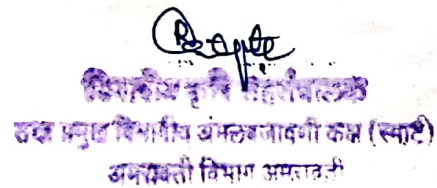 विभागीय कृषि सहसंचालक
तथा प्रमुख विभागीय अंमलबजावणी कक्ष (स्मार्ट)
अमरावती विभाग अमरावती